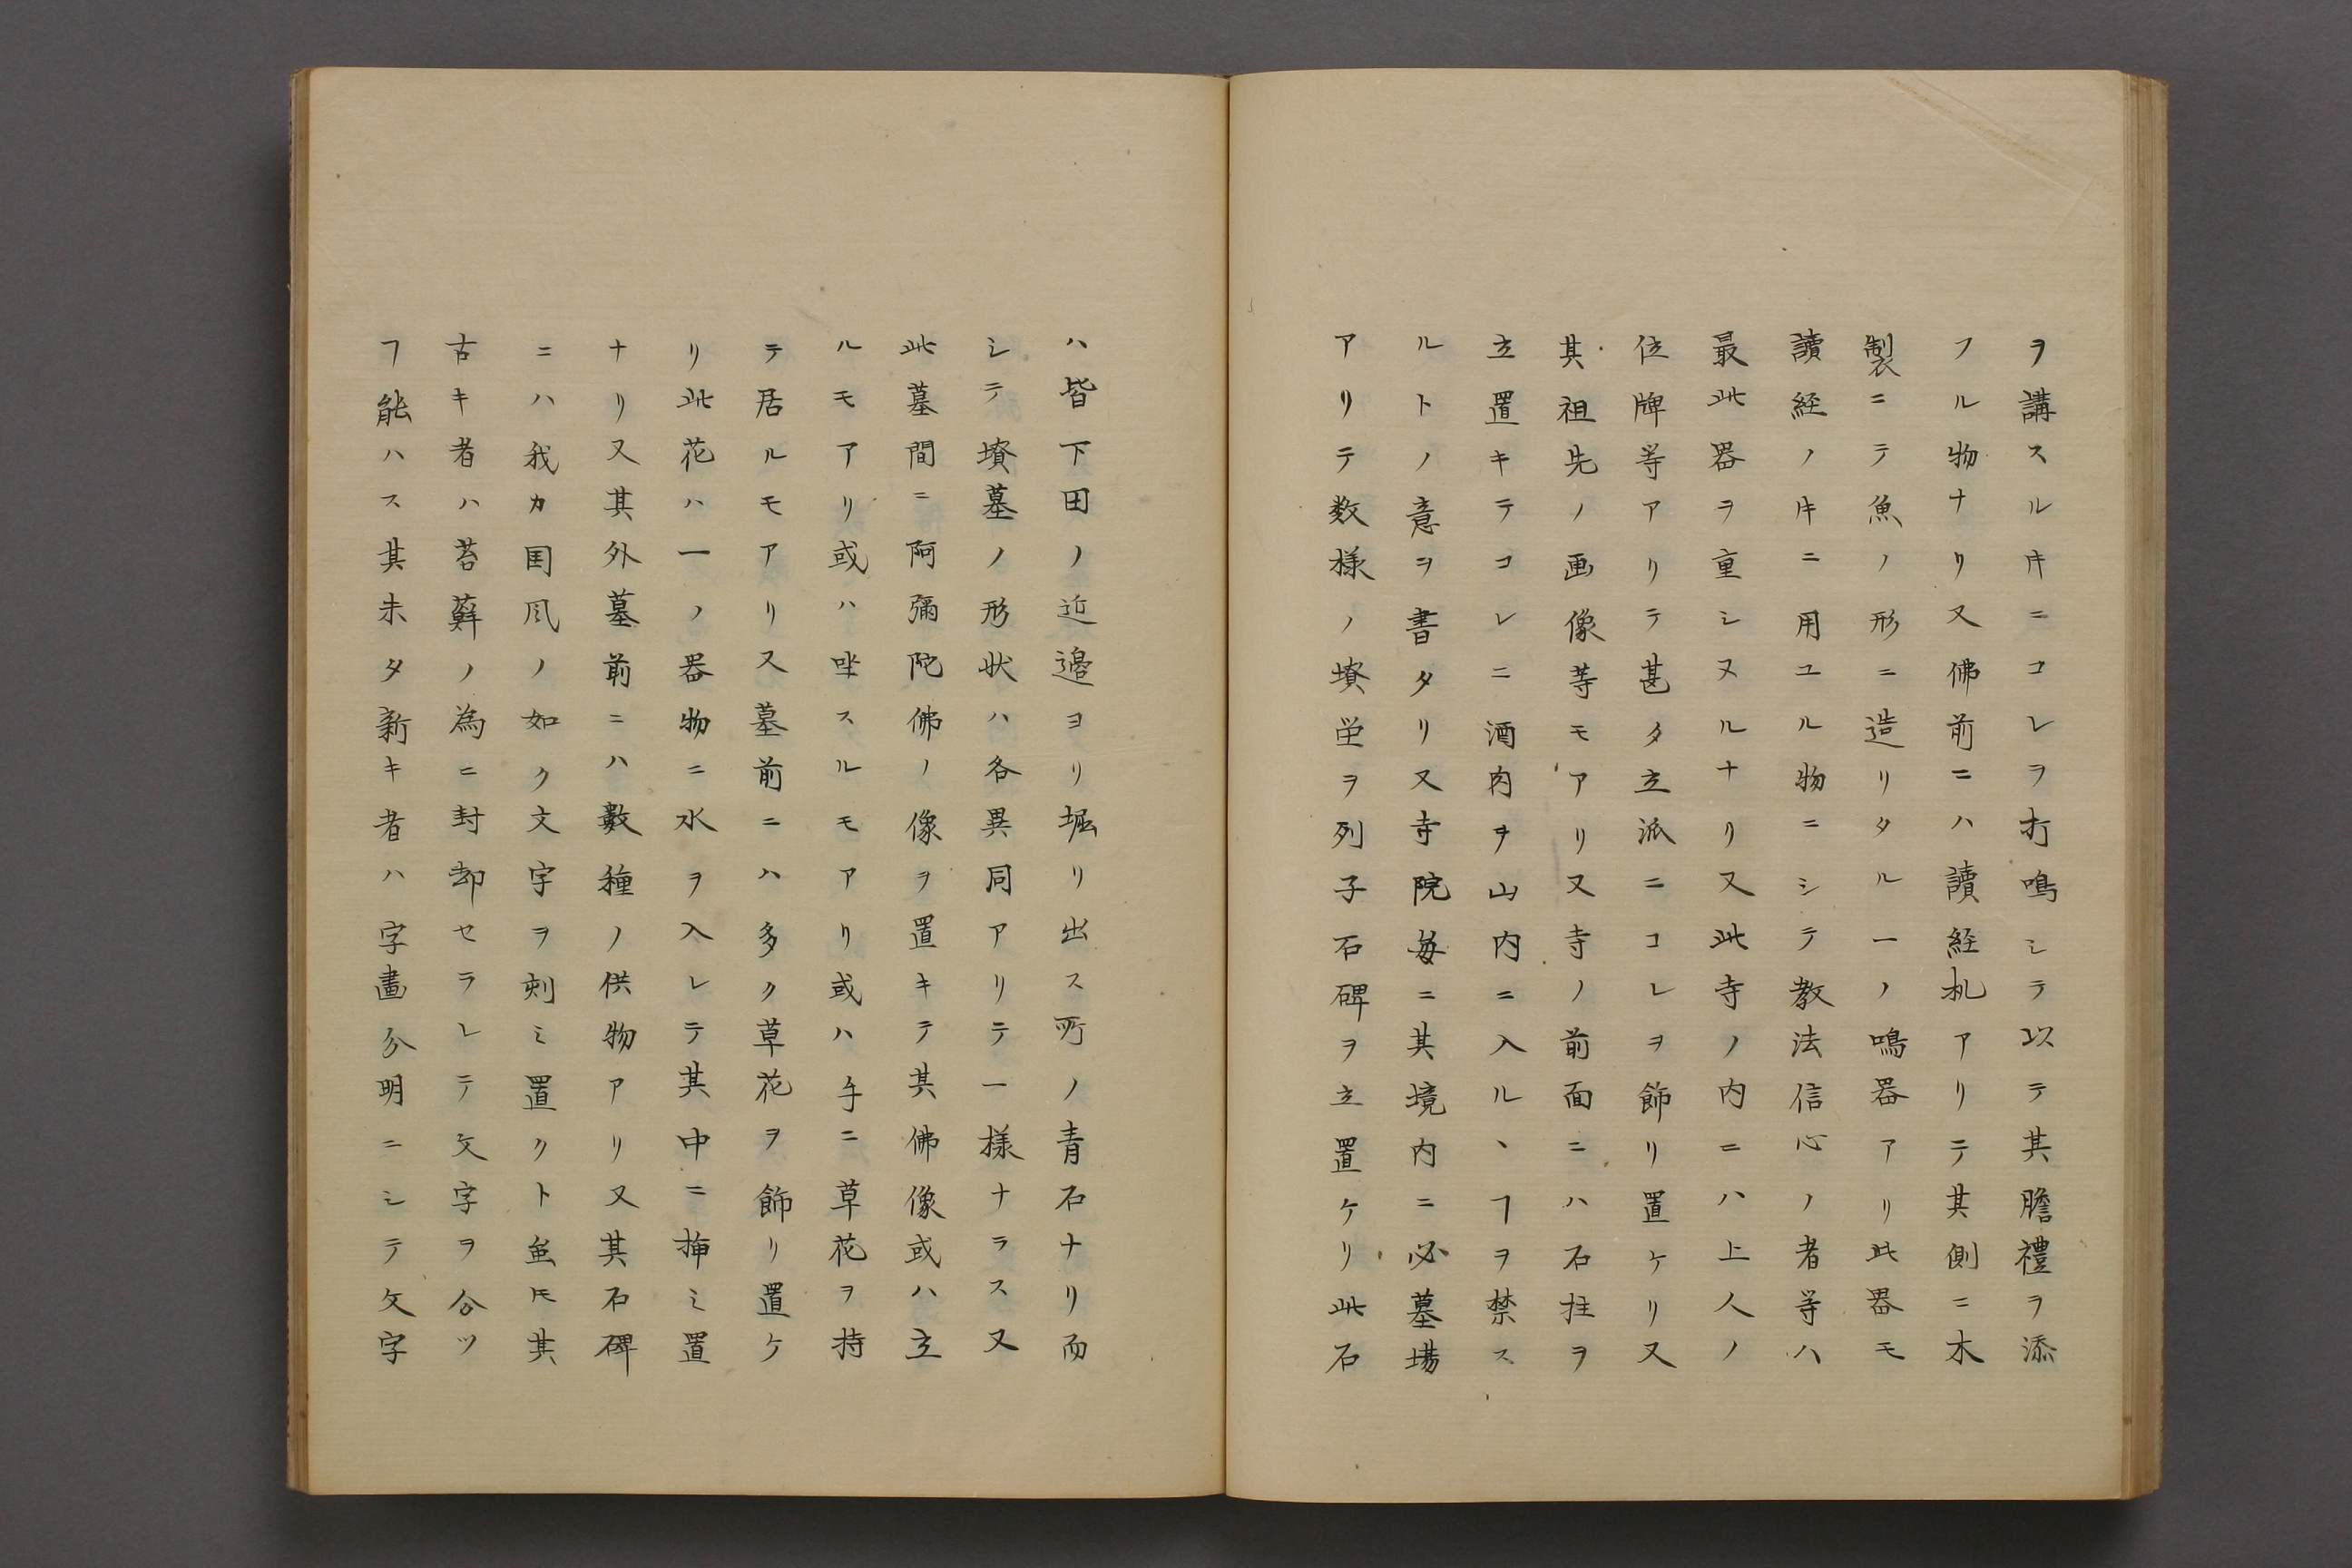 ヲ講スル𪜈ニコレヲ打鳴シテ以テ其膽禮ヲ添
フル物ナリ又佛前ニハ讀経机アリテ其側ニ木
製ニテ魚ノ形ニ造リタル一ノ鳴器アリ此器モ
讀経ノ𪜈ニ用ユル物ニシテ教法信心ノ者等ハ
最此器ヲ重シヌルナリ又此寺ノ内ニハ上人ノ
位牌等アリテ甚タ立派ニコレヲ飾リ置ケリ又
其祖先ノ画像等モアリ又寺ノ前面ニハ石柱ヲ
立置キテコレニ酒肉ヲ山内ニ入ルヽヿヲ禁ス
ルトノ意ヲ書タリ又寺院毎ニ其境内ニ必墓場
アリテ数様ノ墳塋ヲ列子石碑ヲ立置ケリ此石
ハ皆下田ノ近邉ヨリ堀リ出ス所ノ青石ナリ而
シテ墳墓ノ形状ハ各異同アリテ一様ナラス又
此墓間ニ阿彌陀佛ノ像ヲ置キテ其佛像或ハ立
ルモアリ或ハ坐スルモアリ或ハ手ニ草花ヲ持
テ居ルモアリ又墓前ニハ多ク草花ヲ飾リ置ケ
リ此花ハ一ノ器物ニ水ヲ入レテ其中ニ挿ミ置
ナリ又其外墓前ニハ數種ノ供物アリ又其石碑
ニハ我カ国風ノ如ク文字ヲ刻ミ置クト𪜈其
古キ者ハ苔蘚ノ為ニ封却セラレテ文字ヲ分ツ
ヿ能ハス其未タ新キ者ハ字畫分明ニシテ文字